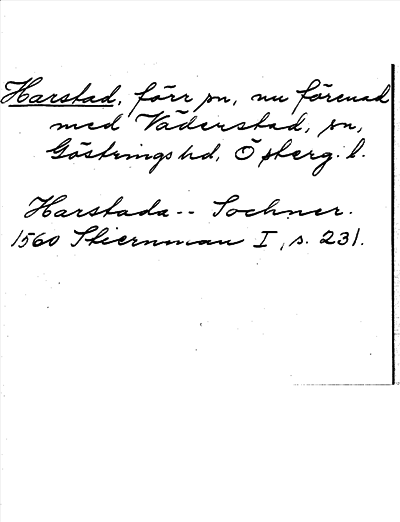 Harstad, förr sn, nu förenad
med Väderstad, sn,
Göstrings hd, Östberg. l.
Harstada -- Sochner.
1560 Stiernman I, s. 231.